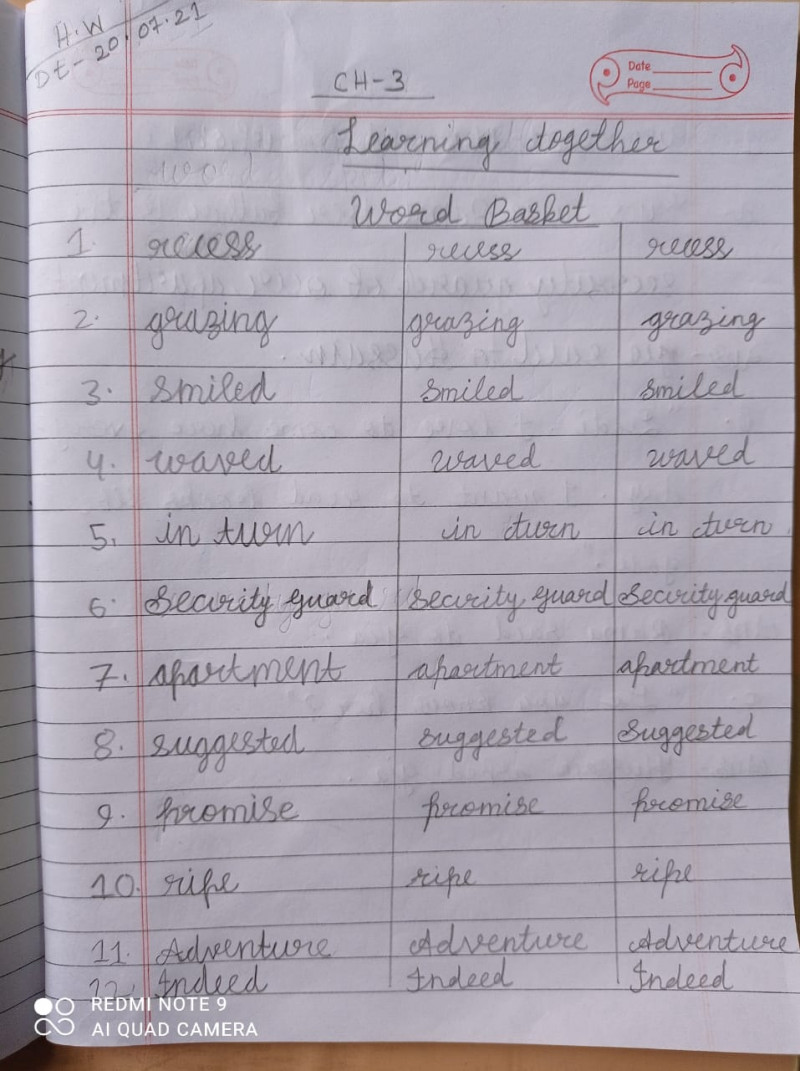 H.W
Dt - 20.07.21
Date
Page
CH-3
Learning together
Word Basket
1. recess recess recess
2. grazing grazing grazing
3. smiled smiled smiled
4. waved waved waved
5. in turn in turn in turn
6. Security guard Security guard Security guard
7. apartment apartment apartment
8. suggested suggested suggested
9. promise promise promise
10. ripe ripe ripe
11. Adventure Adventure Adventure
12. Indeed Indeed Indeed
REDMI NOTE 9
AI QUAD CAMERA